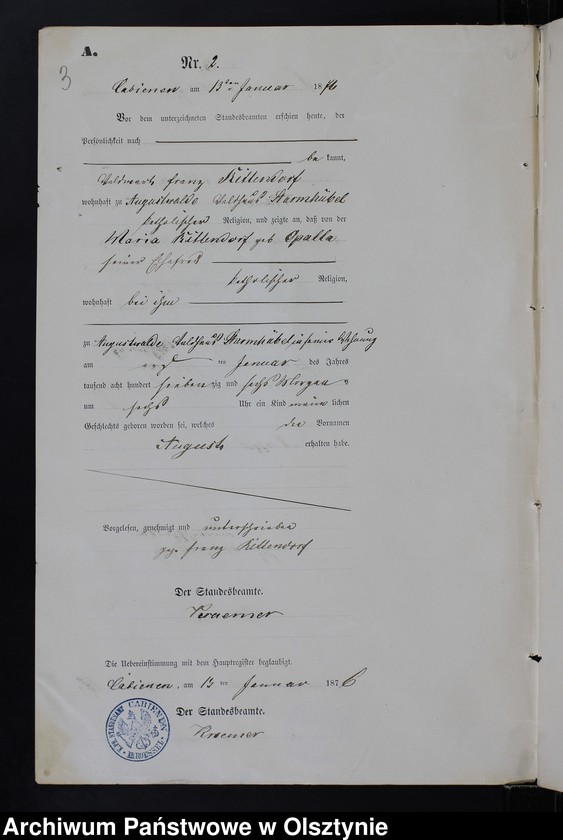 A.
3
Nr. 2.
Cabienen am 13ten Januar 1876
Vor dem unterzeichneten Standesbeamten erschien heute, der
Persönlichkeit nach
be kannt,
Waldwart Franz Kittendorf
wohnhaft zu Augustwalde Waldhaus Sturmhübel
katholischer Religion, und zeigte an, daß von der
Maria Kittendorf geb Opalla
seiner Ehefrau
katholischer Religion,
wohnhaft bei ihm
zu Augustwalde Waldhaus Sturmhübel in seiner Wohnung
am ten Januar des Jahres
tausend acht hundert sieben zig und sechs Morgens
um sechs Uhr ein Kind männ lichen
Geschlechts geboren worden sei, welches die Vornamen
August erhalten habe.
Vorgelesen, genehmigt und unterschrieben
gez. Franz Kittendorf
Der Standesbeamte.
Kraemer
Die Uebereinstimmung mit dem Hauptregister beglaubigt.
Cabienen, am 13 ten Januar 1876
Der Standesbeamte.
Kraemer
CABIENEN
Archiwum Państwowe w Olsztynie